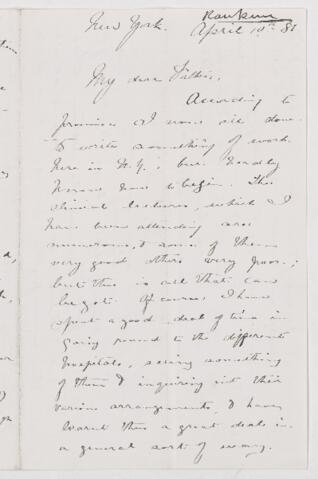 Rankine
New York. April 10th 81
My dear Father,
According to
promise I now sit down
to write something of work
here in N.Y; but hardly
know how to begin. The
clinical lectures, which I
have been attending are
numerous, & some of them
very good others very poor;
but this is all that can
be got. Of course I have
spent a good deal of time in
going round to the different
hospitals, seeing something
of them & inquiring into their
various arrangements, & have
learnt thus a great deal in
a general sort of way.